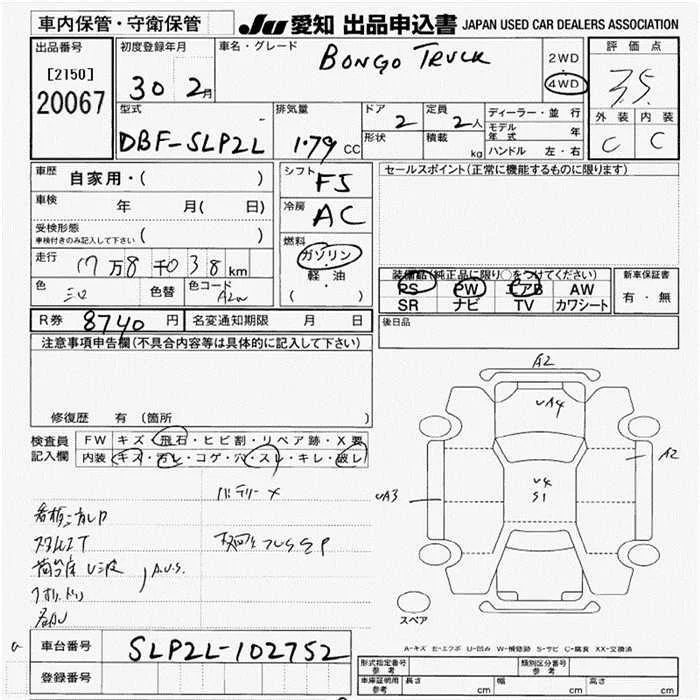 車内保管・守衛保管
JU 愛知 出品申込書 JAPAN USED CAR DEALERS ASSOCIATION
出品番号
[2150]
20067
初度登録年月
30 2月
車名・グレード
BONGO TRUCK
2WD
4WD
評価点
3.5
外装 内装
C C
型式
DBF-SLP2L
排気量
1.79 CC
ドア
2
定員
2人
形状
積載
kg
ディーラー・並行
モデル年式 年
ハンドル 左・右
車歴
自家用・( )
車検
年 月( 日)
受検形態
車検付きのみ記入して下さい ( )
走行
17万8千038km
色
色替
色コード
A2W
シフト
F5
冷房
AC
燃料
ガソリン
軽・油
( )
セールスポイント(正常に機能するものに限ります)
装備品(純正品に限り○をつけてください)
PS PW エアB AW
SR ナビ TV カワシート
新車保証書
有・無
後日品
R券 8740円 名変通知期限 月 日
注意事項申告欄(不具合内容等は具体的に記入して下さい)
修復歴 有(箇所
検査員記入欄
FW キズ・飛石・ヒビ割・リペア跡・X要
内装 キズ・汚レ・コゲ・穴・スレ・キレ・破レ
バッテリー×
A2
UA4
A2
UA3
U4
S1
スペア
A-キズ E-エクボ U-凹み W-補修跡 S-サビ C-腐食 XX-交換済
車台番号 SLP2L-102752
登録番号
形式指定番号
参考
類別区分番号
参考
車庫証明用
参考
長さ cm
幅 cm
高さ cm